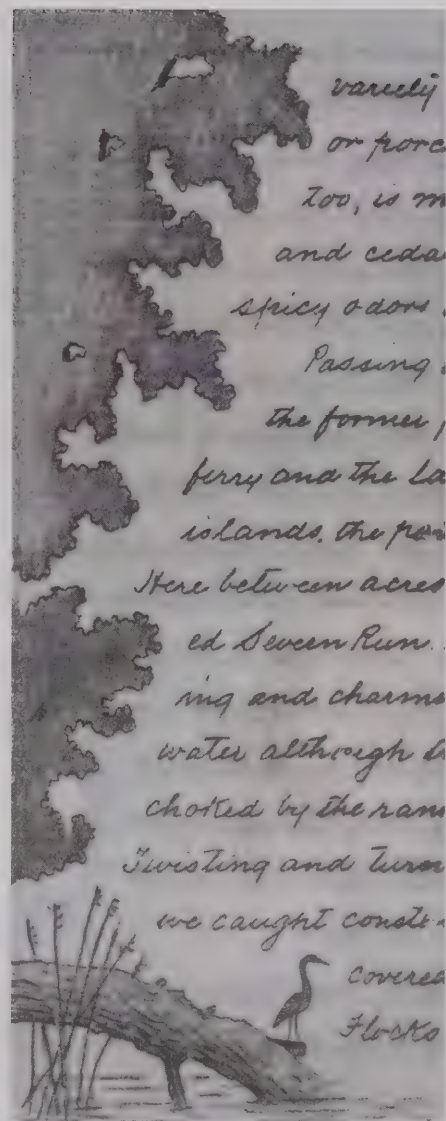 variely
or porc
too, is m
and ceda
spicy odors
Passing
the former,
ferry and the La
islands. the por
Here between acres
ed Severn Run.
ing and charm
water although
choked by the ran
Twisting and turn
we caught const
covered
Flocks